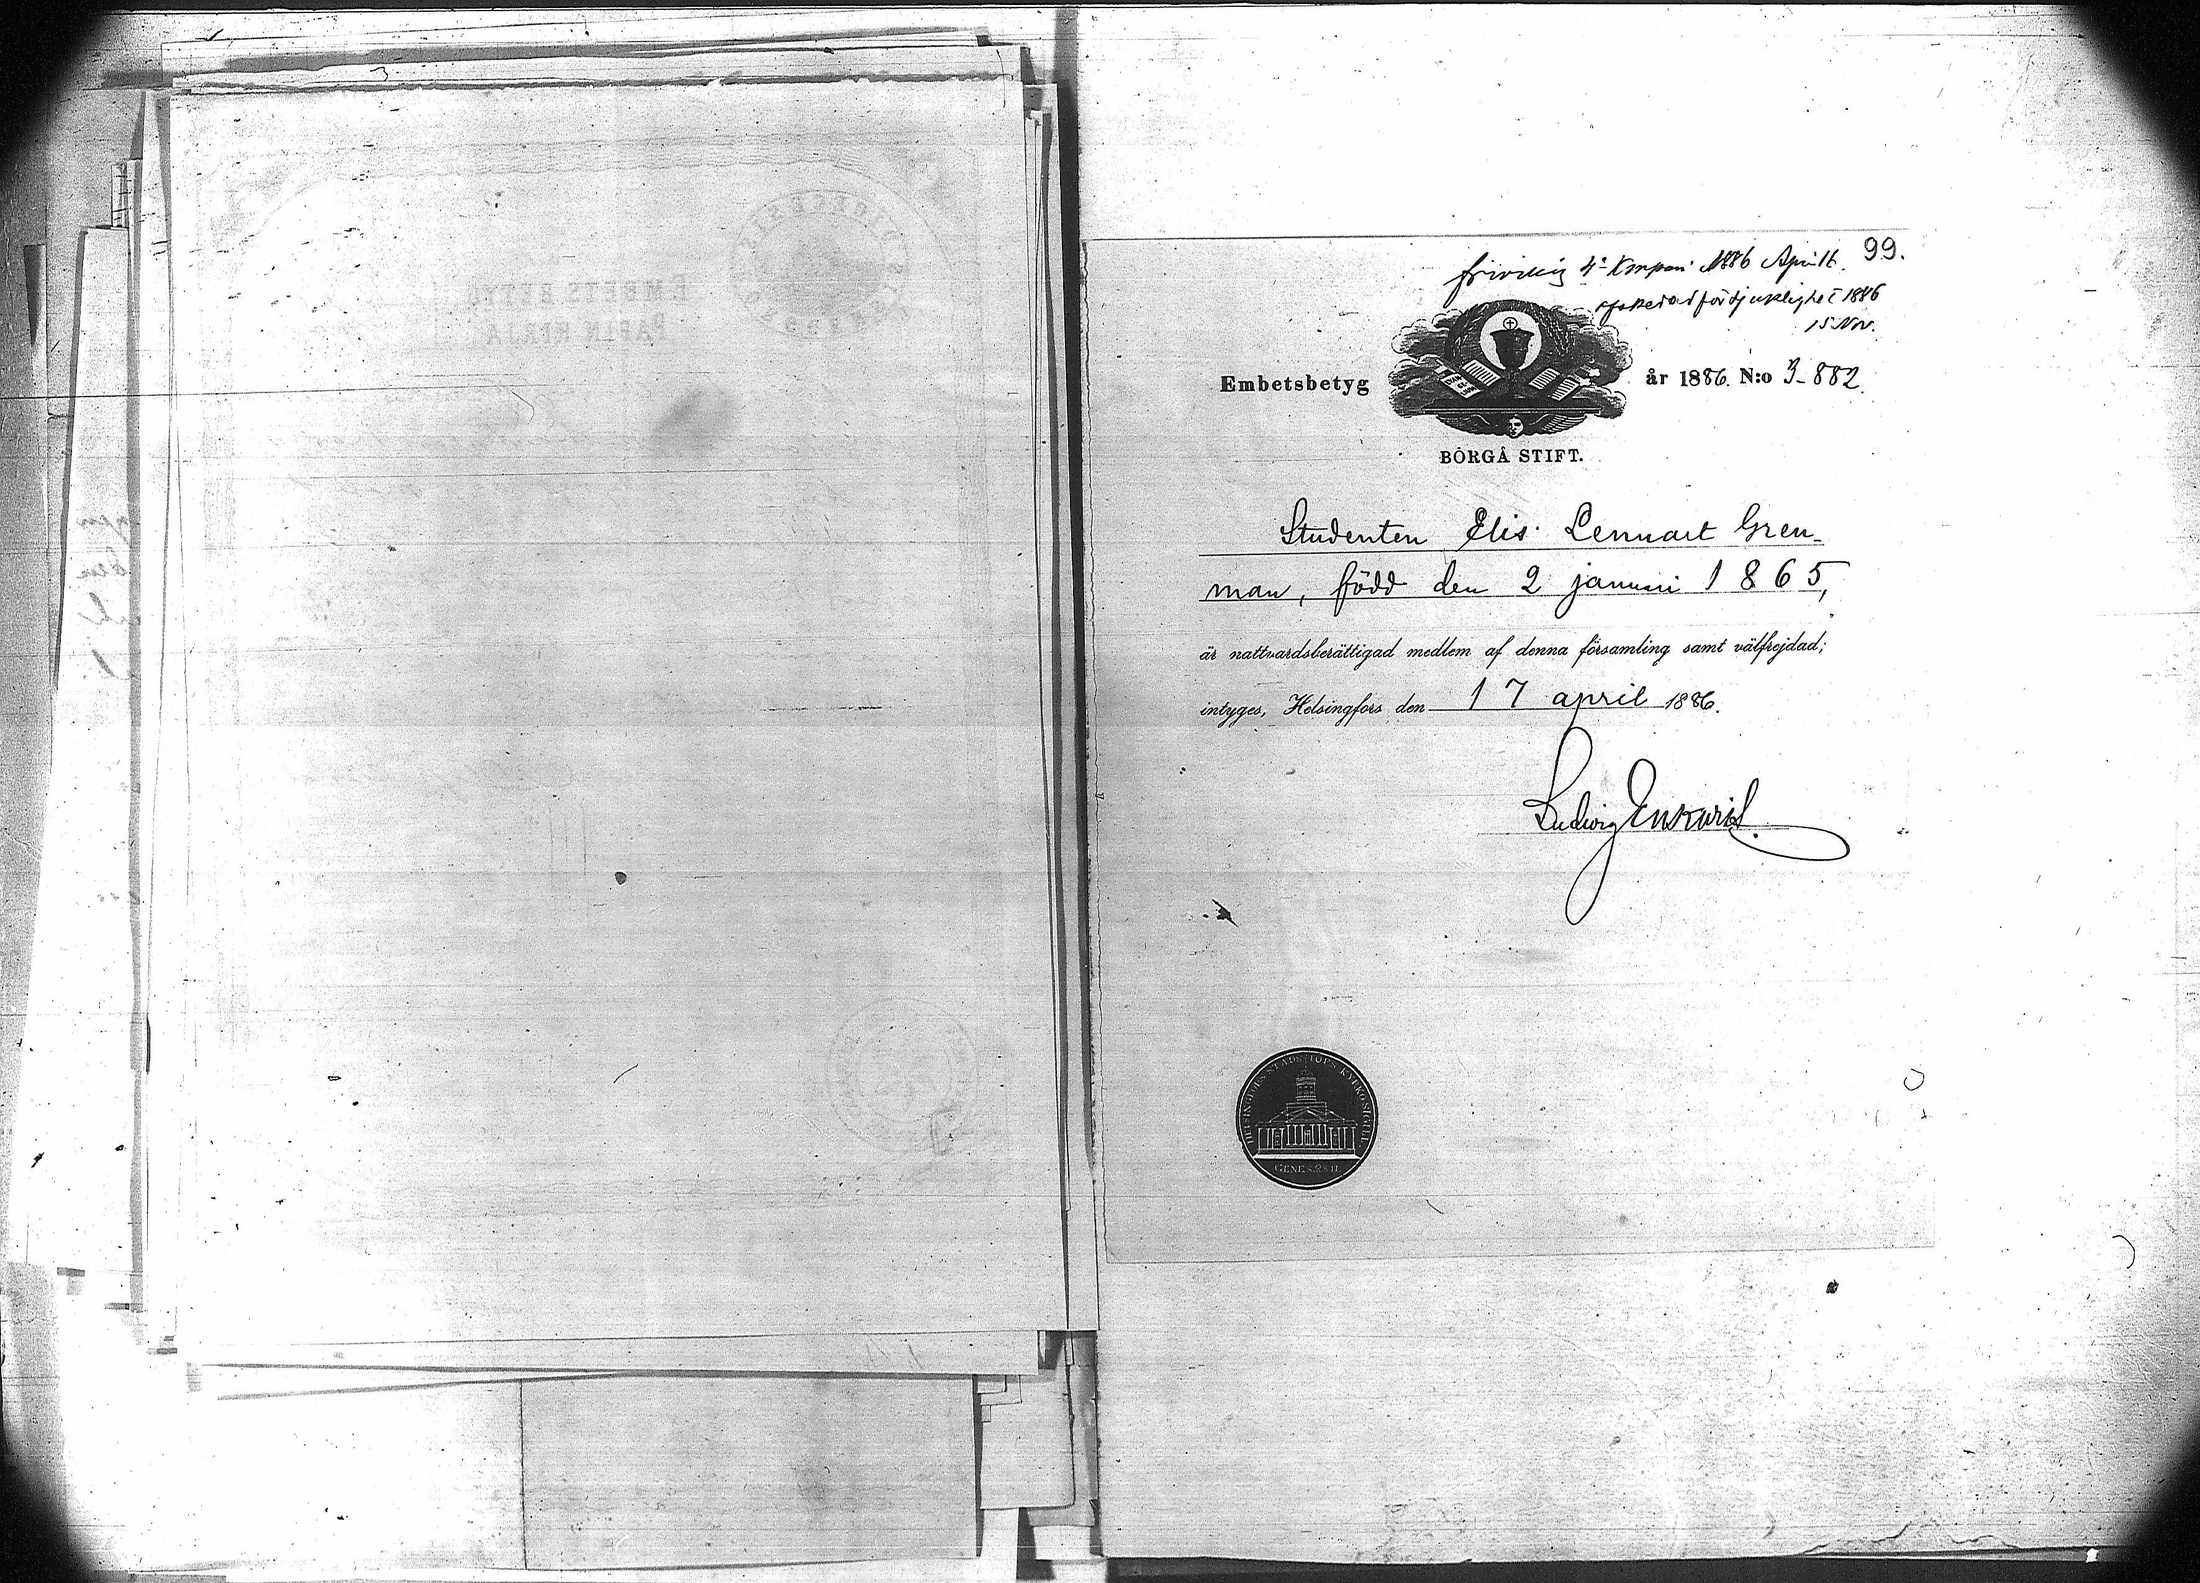 99.
frivillig 4:e Kompani 1886 April 16.
1886
15 Nov.
Embetsbetyg år 1886. N:o 3-882.
BORGÅ STIFT.
Studenten Elis Lennart Gren-
man, född den 2 januari 1865,
är nattvardsberättigad medlem af denna församling samt välfrejdad;
intyges, Helsingfors den 17 april 1886.
Ludvig
HELSINGFORS STADS KYRKO SIGILL.
GENES. 28:11.
EMBETS BETYG
PAPIN KIRJA